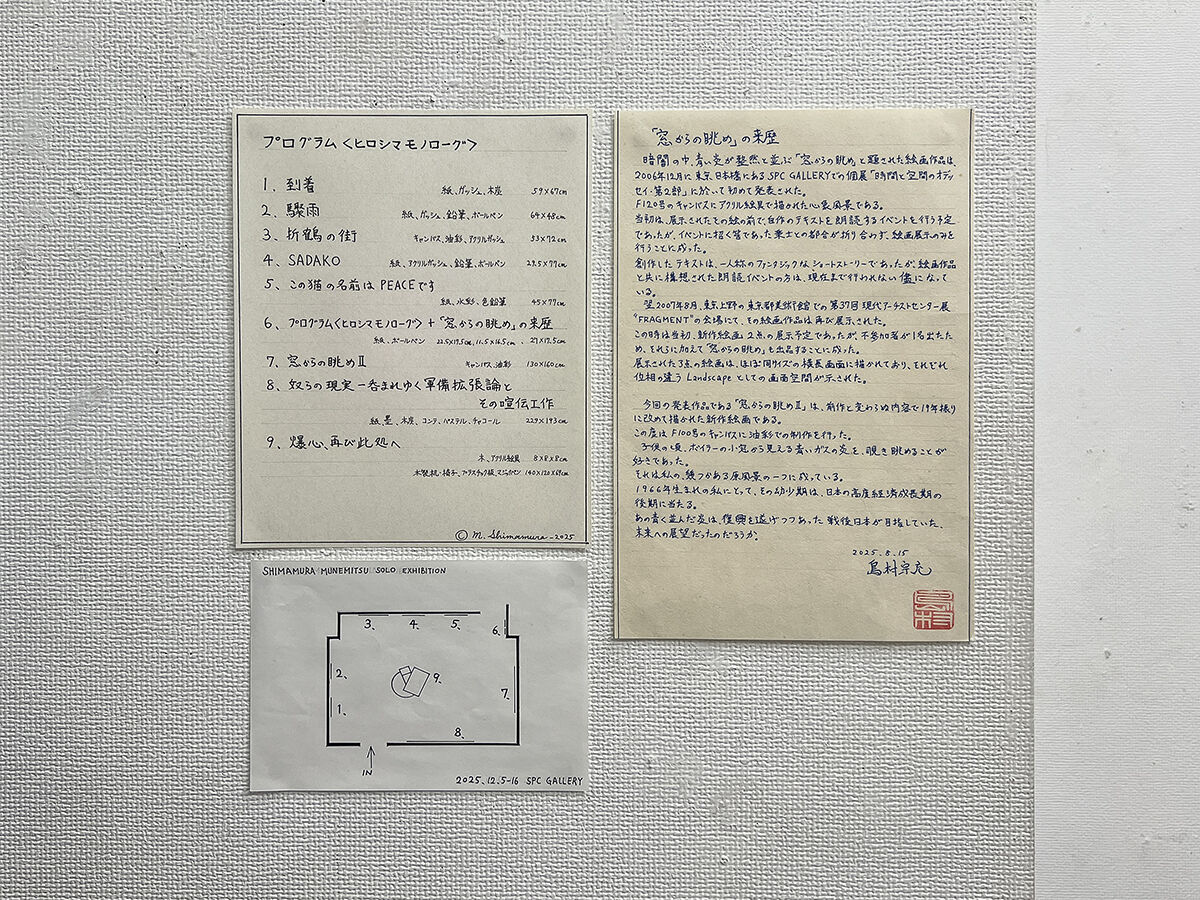 プログラム〈ヒロシマモノローグ〉
1. 到着 紙、ガッシュ、木炭 59×67cm
2. 驟雨 紙、ガッシュ、鉛筆、ボールペン 64×48cm
3. 折鶴の街 キャンバス、油彩、アクリルガッシュ 53×72cm
4. SADAKO 紙、アクリルガッシュ、鉛筆、ボールペン 29.5×77cm
5. この猫の名前はPEACEです
紙、水彩、色鉛筆 45×77cm
6. プログラム〈ヒロシマモノローグ〉+「窓からの眺め」の来歴
紙、ボールペン 22.5×17.5cm, 11.5×16.5cm, 27×17.5cm
7. 窓からの眺めⅡ キャンバス、油彩 130×160cm
8. 奴らの現実 ー呑まれゆく軍備拡張論と
その喧伝工作
紙、墨、木炭、コンテ、パステル、チャコール 229×193cm
9. 爆心、再び此処へ
木、アクリル絵具 8×8×8cm
木製机・椅子、プラスチック板、マジックペン 140×120×69cm
© M. Shimamura-2025
SHIMAMURA MUNEMITSU SOLO EXHIBITION
3. 4. 5. 6.
2. 9.
1. 7.
8.
IN
2025.12.5-16 SPC GALLERY
「窓からの眺め」の来歴
暗闇の中、青い炎が整然と並ぶ「窓からの眺め」と題された絵画作品は、
2006年12月に東京日本橋にあるSPC GALLERYでの個展「時間と空間のオデッ
セイ・第2部」に於いて初めて発表された。
F120号のキャンバスにアクリル絵具で描かれた心象風景である。
当初は、展示されたその絵の前で、自作のテキストを朗読するイベントを行う予定
であったが、イベントに招く筈であった楽士との都合が折り合わず、絵画展示のみを
行うことに成った。
創作したテキストは、一人称のファンタジックなショートストーリーであったが、絵画作品
と共に構想された朗読イベントの方は、現在まで行われない儘になって
いる。
翌2007年8月、東京上野の東京都美術館での第37回現代アーチストセンター展
"FRAGMENT"の会場にて、その絵画作品は再び展示された。
この時は当初、新作絵画2点の展示予定であったが、不参加者が1名出たた
め、それらに加えて「窓からの眺め」も出品することに成った。
展示された3点の絵画は、ほぼ同サイズの横長画面に描かれており、それぞれ
位相の違うLandscapeとしての画面空間が示された。
今回の発表作品である「窓からの眺めⅡ」は、前作と変わらぬ内容で19年振り
に改めて描かれた新作絵画である。
この度はF100号のキャンバスに油彩での制作を行った。
子供の頃、ボイラーの小窓から見える青いガスの炎を、覗き眺めることが
好きであった。
それは私の、幾つかある原風景の一つに成っている。
1966年生まれの私にとって、その幼少期は、日本の高度経済成長期の
後期に当たる。
あの青く並んだ炎は、復興を遂げつつあった戦後日本が目指していた、
未来への展望だったのだろうか。
2025.8.15
島村宗充